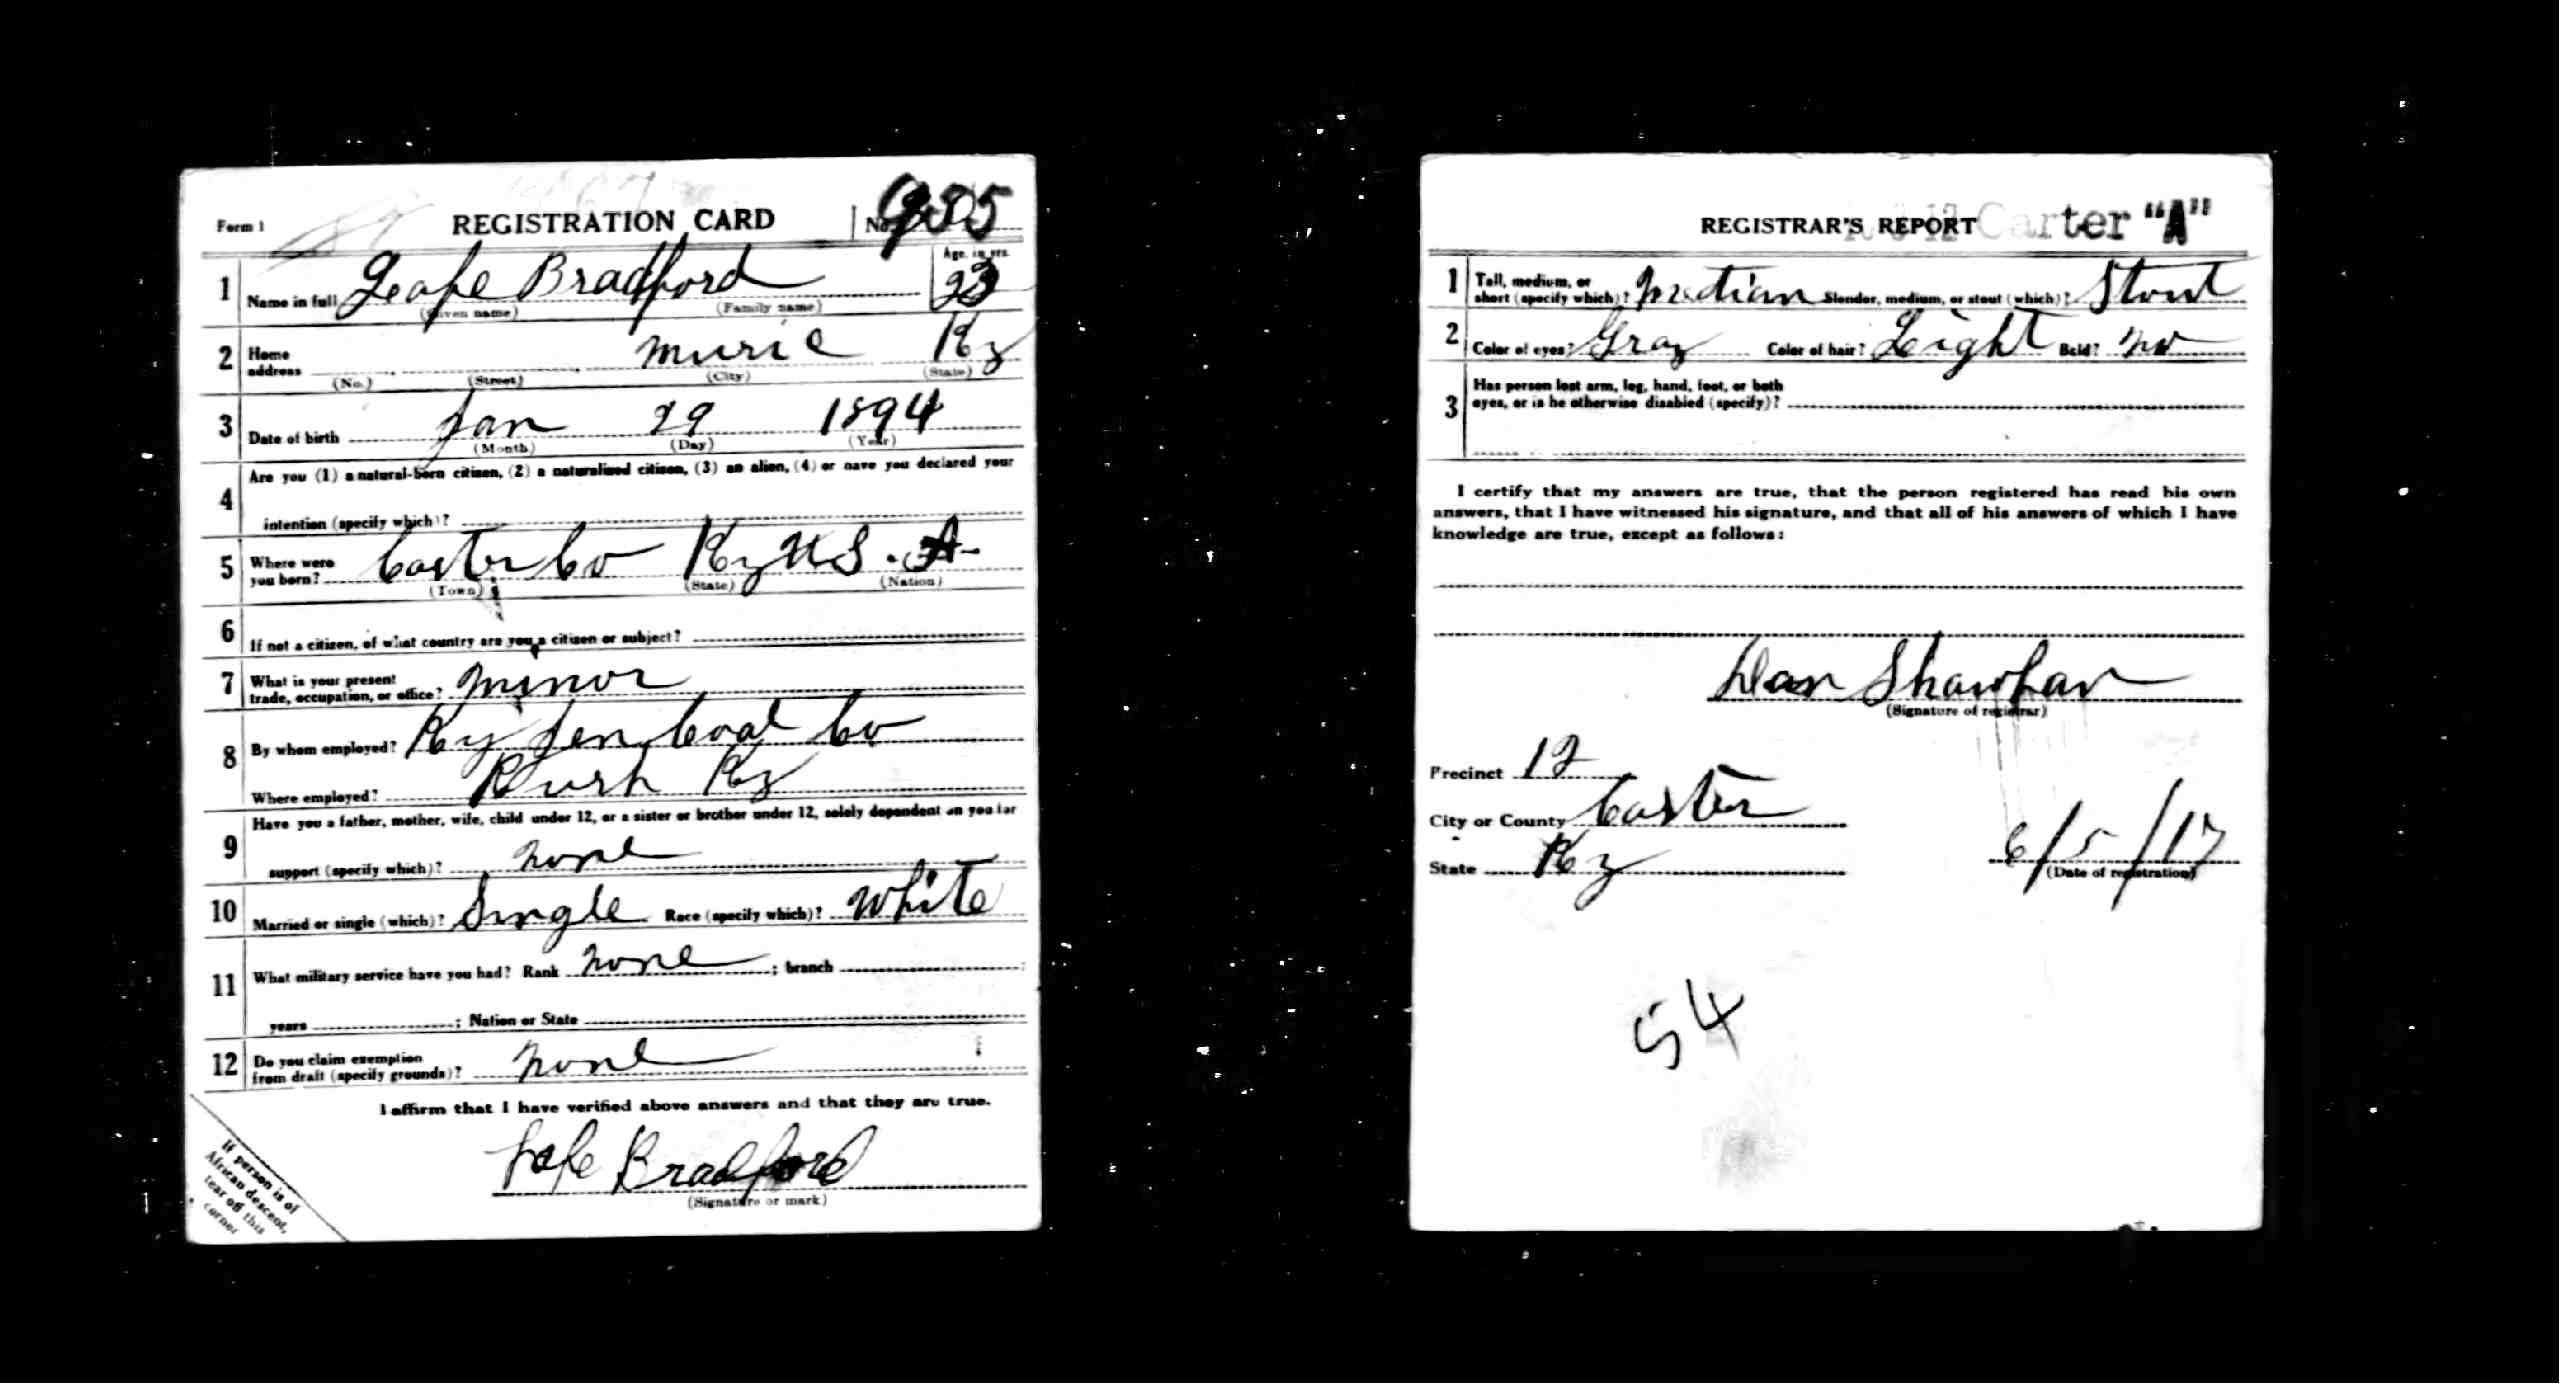 Form 1
REGISTRATION CARD
No. 985
1 Name in full Leafe Bradford
(Given name) (Family name)
Age, in yrs. 23
2 Home address Muric Ky
(No.) (Street) (City) (State)
3 Date of birth Jan 29 1894
(Month) (Day) (Year)
4 Are you (1) a natural-born citizen, (2) a naturalized citizen, (3) an alien, (4) or have you declared your
intention (specify which)?
5 Where were you born? Carter Co Ky U.S.A.
(Town) (State) (Nation)
6 If not a citizen, of what country are you a citizen or subject?
7 What is your present trade, occupation, or office? Minor
8 By whom employed? Ky Jen Coal Co
Where employed? Rush Ky
9 Have you a father, mother, wife, child under 12, or a sister or brother under 12, solely dependent on you for
support (specify which)? none
10 Married or single (which)? Single Race (specify which)? White
11 What military service have you had? Rank none ; branch ;
years ; Nation or State
12 Do you claim exemption from draft (specify grounds)? none
I affirm that I have verified above answers and that they are true.
Lafe Bradford
(Signature or mark)
If person is of
African descent,
tear off this
corner
REGISTRAR'S REPORT
Carter "A"
1 Tall, medium, or short (specify which)? Median Slender, medium, or stout (which)? Stout
2 Color of eyes? Gray Color of hair? Light Bald? no
3 Has person lost arm, leg, hand, foot, or both
eyes, or is he otherwise disabled (specify)?
I certify that my answers are true, that the person registered has read his own
answers, that I have witnessed his signature, and that all of his answers of which I have
knowledge are true, except as follows:
Dan Shawhan
(Signature of registrar)
Precinct 12
City or County Carter
State Ky
6/5/17
(Date of registration)
54